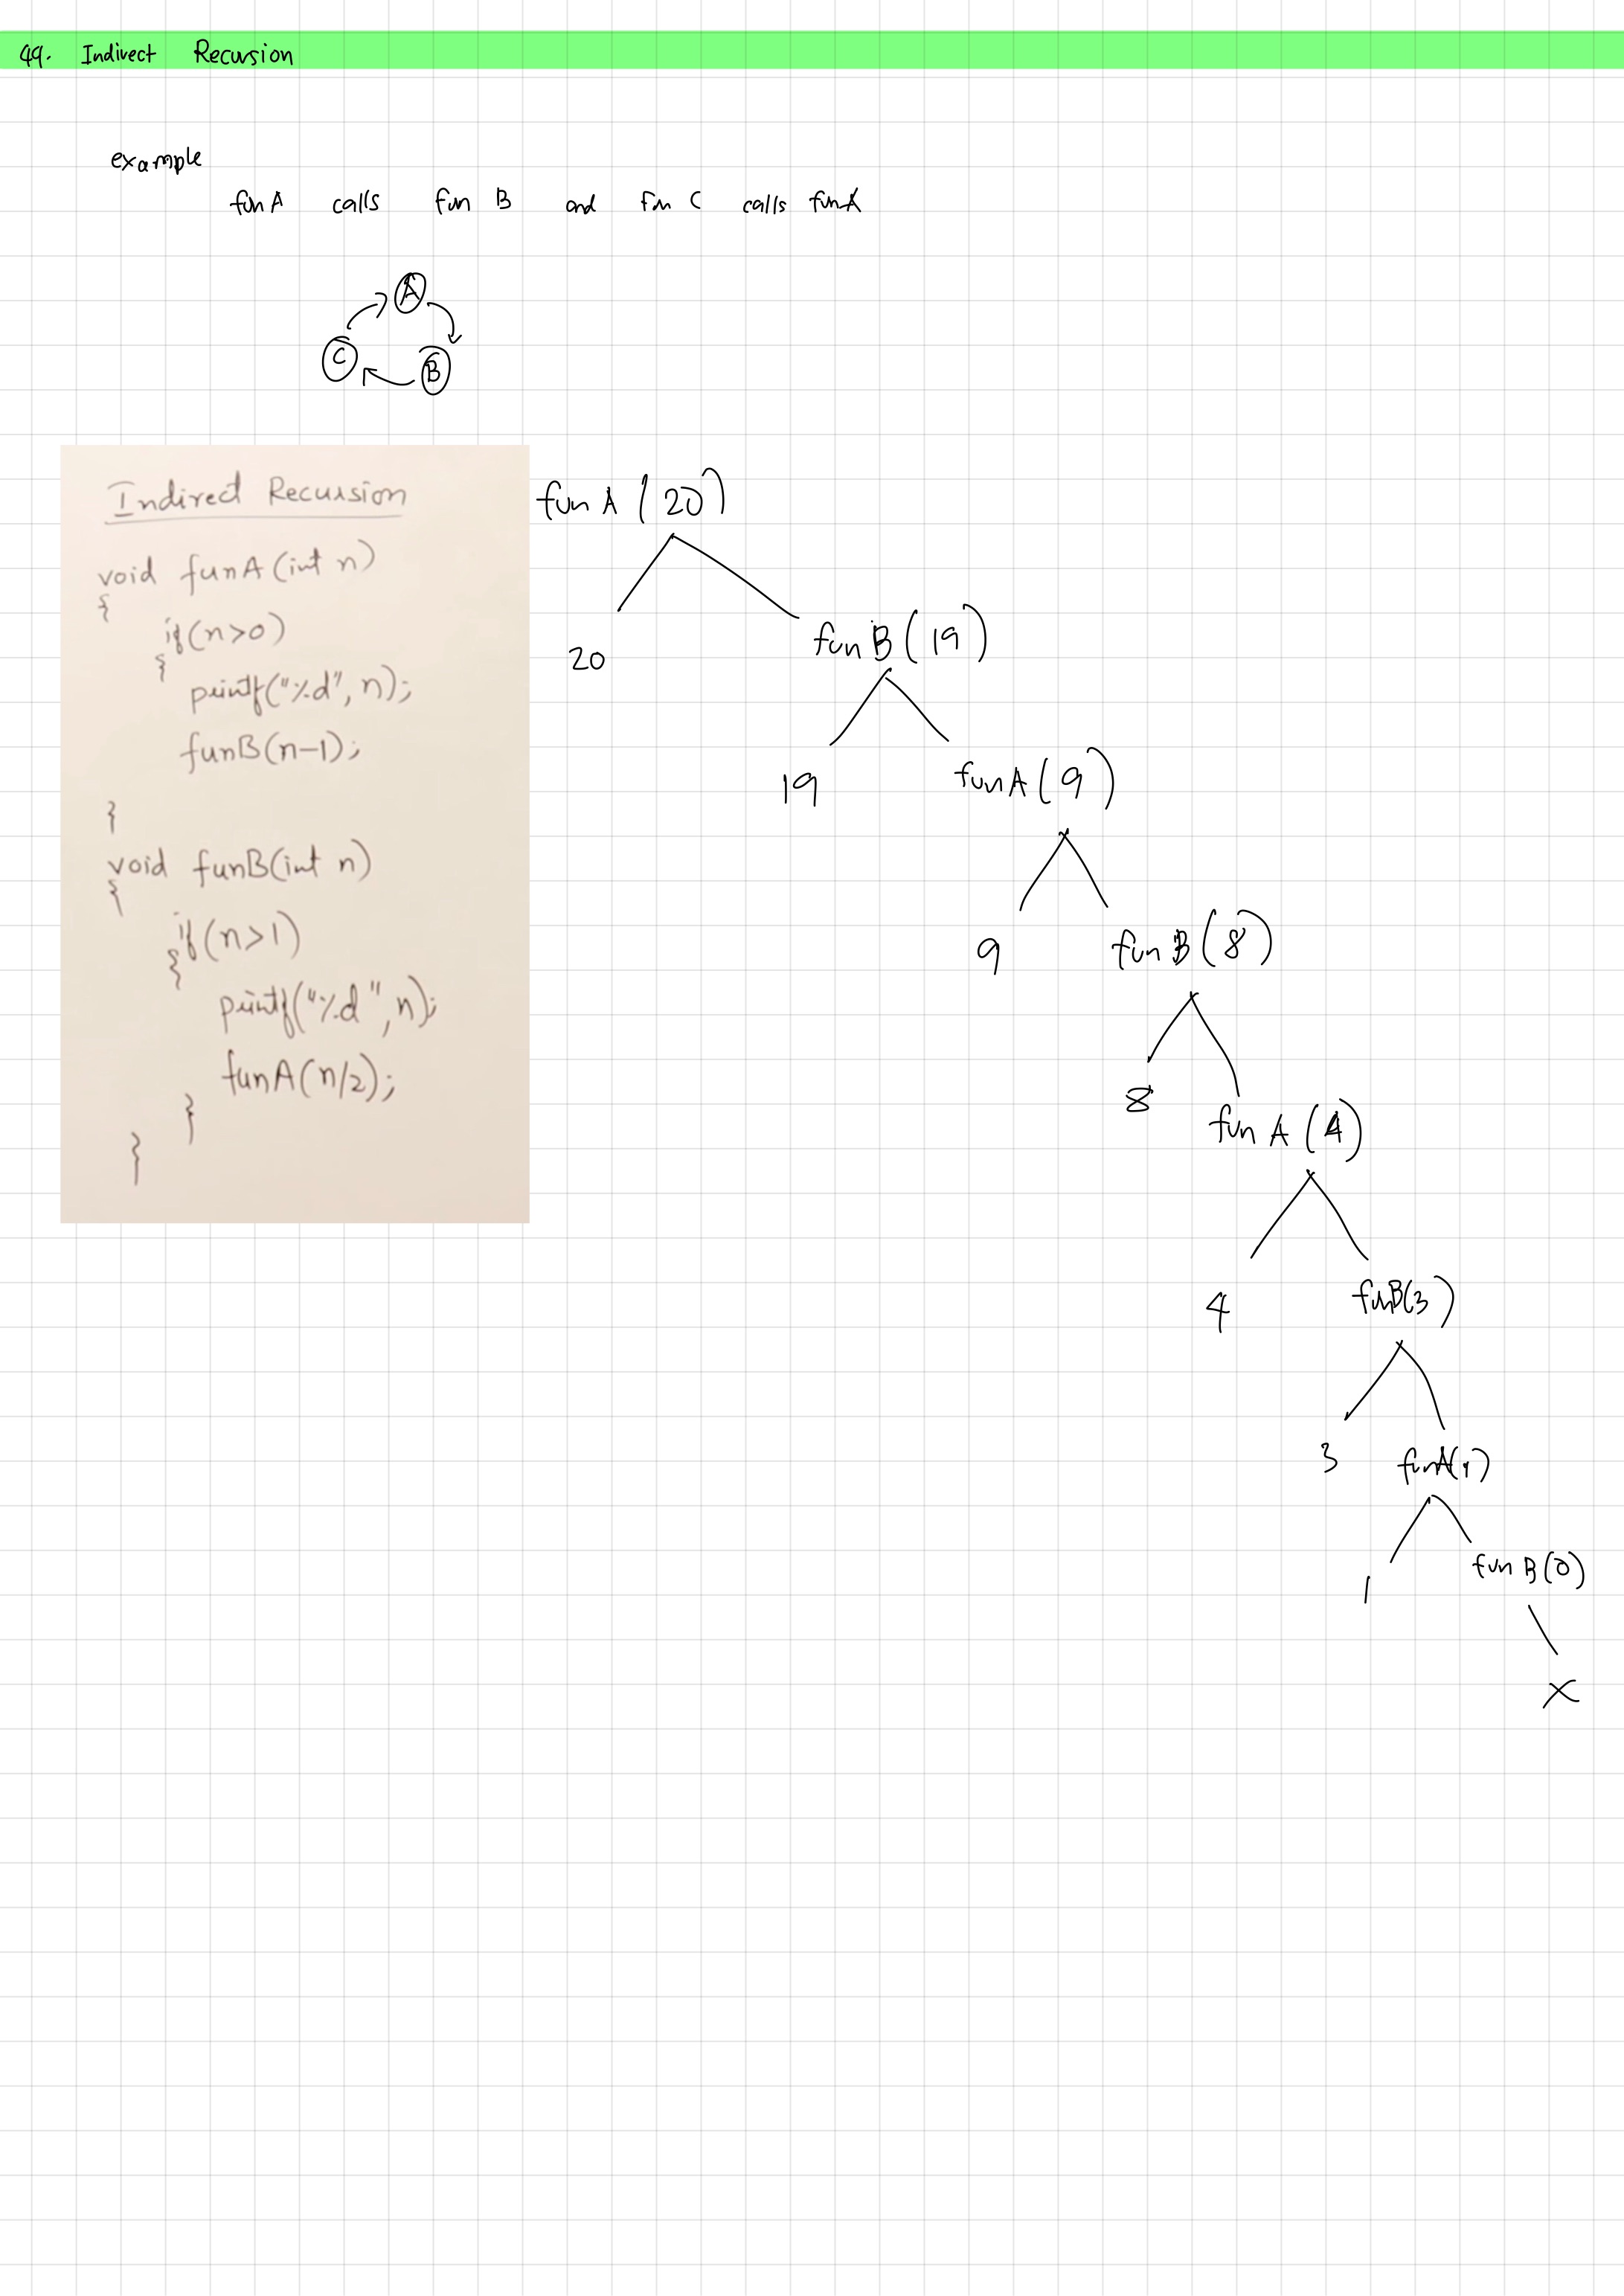 49. Indirect Recursion
example
fun A calls fun B and fun C calls funA
A
C
B
Indirect Recursion
void funA(int n)
{
if(n>0)
{
printf("%d", n);
funB(n-1);
}
void funB(int n)
{
if(n>1)
{
printf("%d", n);
funA(n/2);
}
}
fun A (20)
20
fun B (19)
19
funA (9)
9
fun B (8)
8
fun A (4)
4
funB(3)
3
funA(1)
1
fun B(0)
X